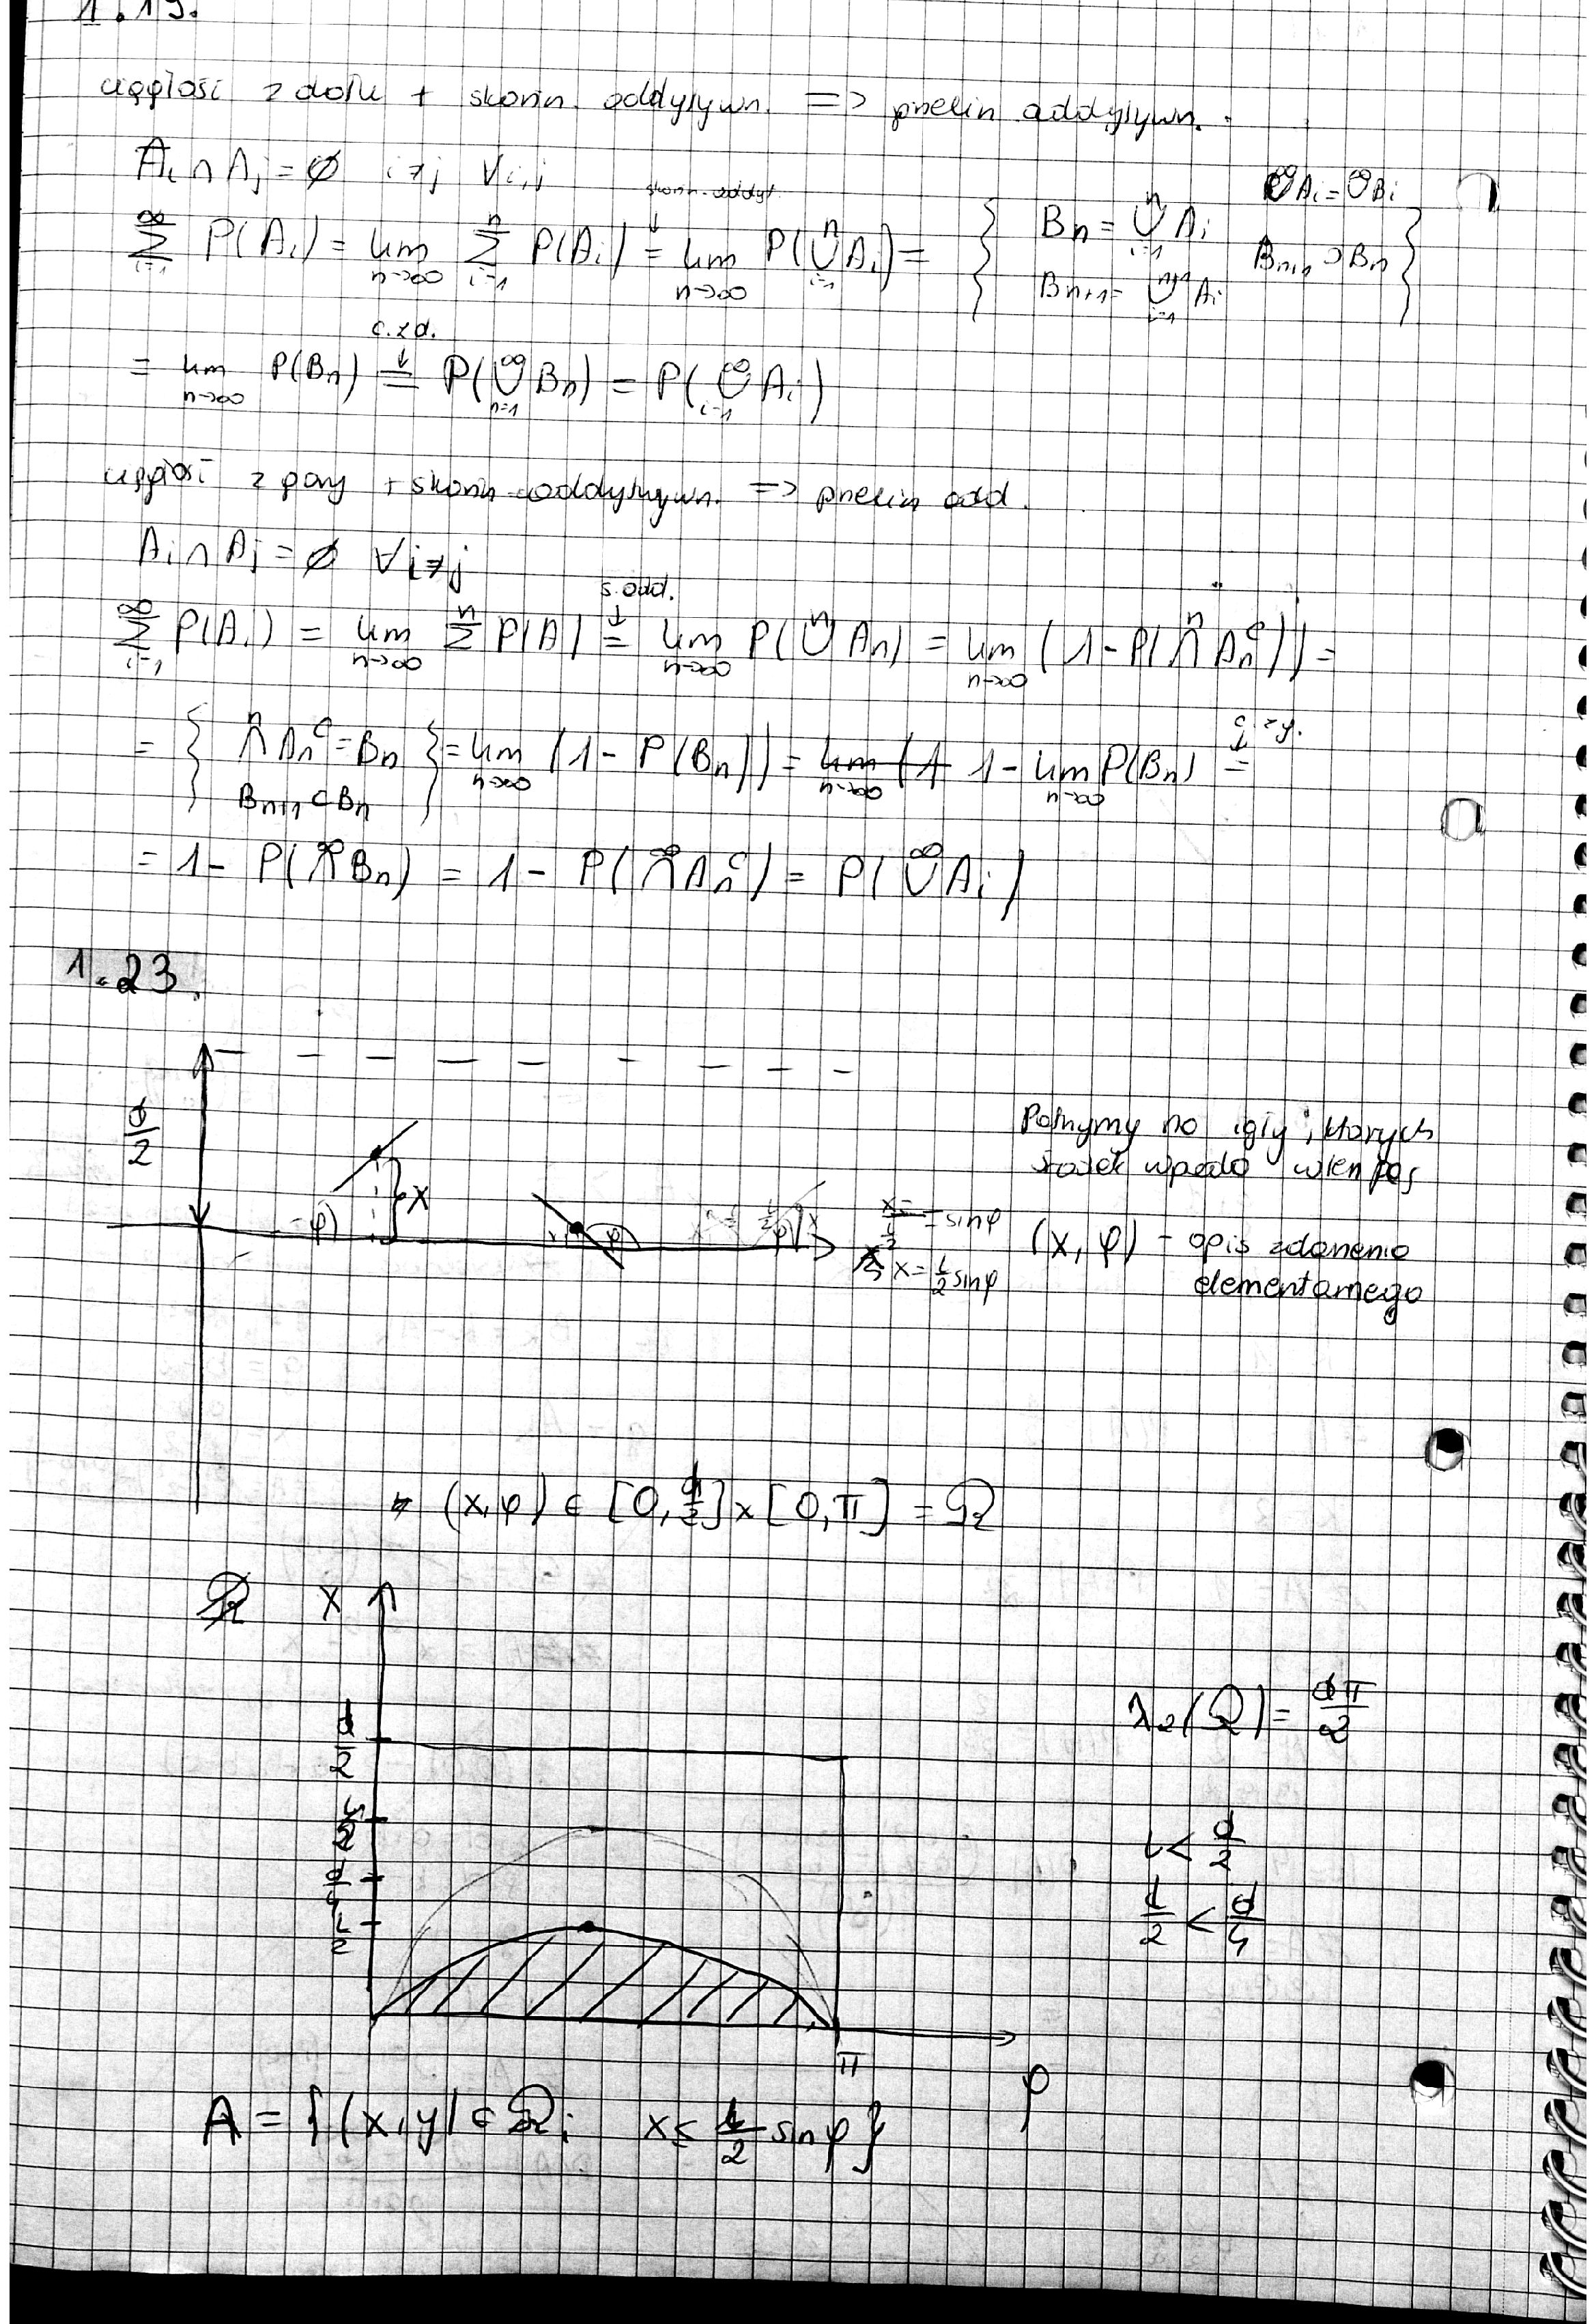 1.19.
ciągłość z dołu + skończ. addytywn. => przelicz addytywn.
Ai ∩ Aj = ∅ i≠j ∀i,j
skończ. addyt
∞⋃Ai = ∞⋃Bi
∞∑i=1 P(Ai) = lim n→∞ n∑i=1 P(Ai) = lim n→∞ P(n⋃i=1 Ai) = { Bn = n⋃i=1 Ai Bn+1 ⊃ Bn
Bn+1 = n+1⋃i=1 Ai }
c.z d.
= lim n→∞ P(Bn) = P(∞⋃n=1 Bn) = P(∞⋃i=1 Ai)
ciągłość z góry + skończ addytywn. => przelicz add.
Ai ∩ Aj = ∅ ∀i≠j
s. add.
∞∑i=1 P(Ai) = lim n→∞ n∑ P(A) = lim n→∞ P(n⋃ An) = lim n→∞ (1 - P(n⋂ An^c)) =
c. z g.
= { n⋂ An^c = Bn } = lim n→∞ (1 - P(Bn)) = lim n→∞ (1 1 - lim n→∞ P(Bn) =
Bn+1 ⊂ Bn
= 1 - P(∞⋂ Bn) = 1 - P(∞⋂ An^c) = P(∞⋃ Ai)
1.23.
d/2
x
φ
φ
x/(L/2) = sinφ
x = L/2 sinφ
Patrzymy na igły, których
środek wpada w ten pas
(x, φ) - opis zdarzenia
elementarnego
(x, φ) ∈ [0, d/2] × [0, π] = Ω
Ω
x
d/2
L/2
d/4
L/2
π
φ
λ2(Ω) = dπ/2
L < d/2
L/2 < d/4
A = {(x, y) ∈ Ω; x ≤ L/2 sinφ}